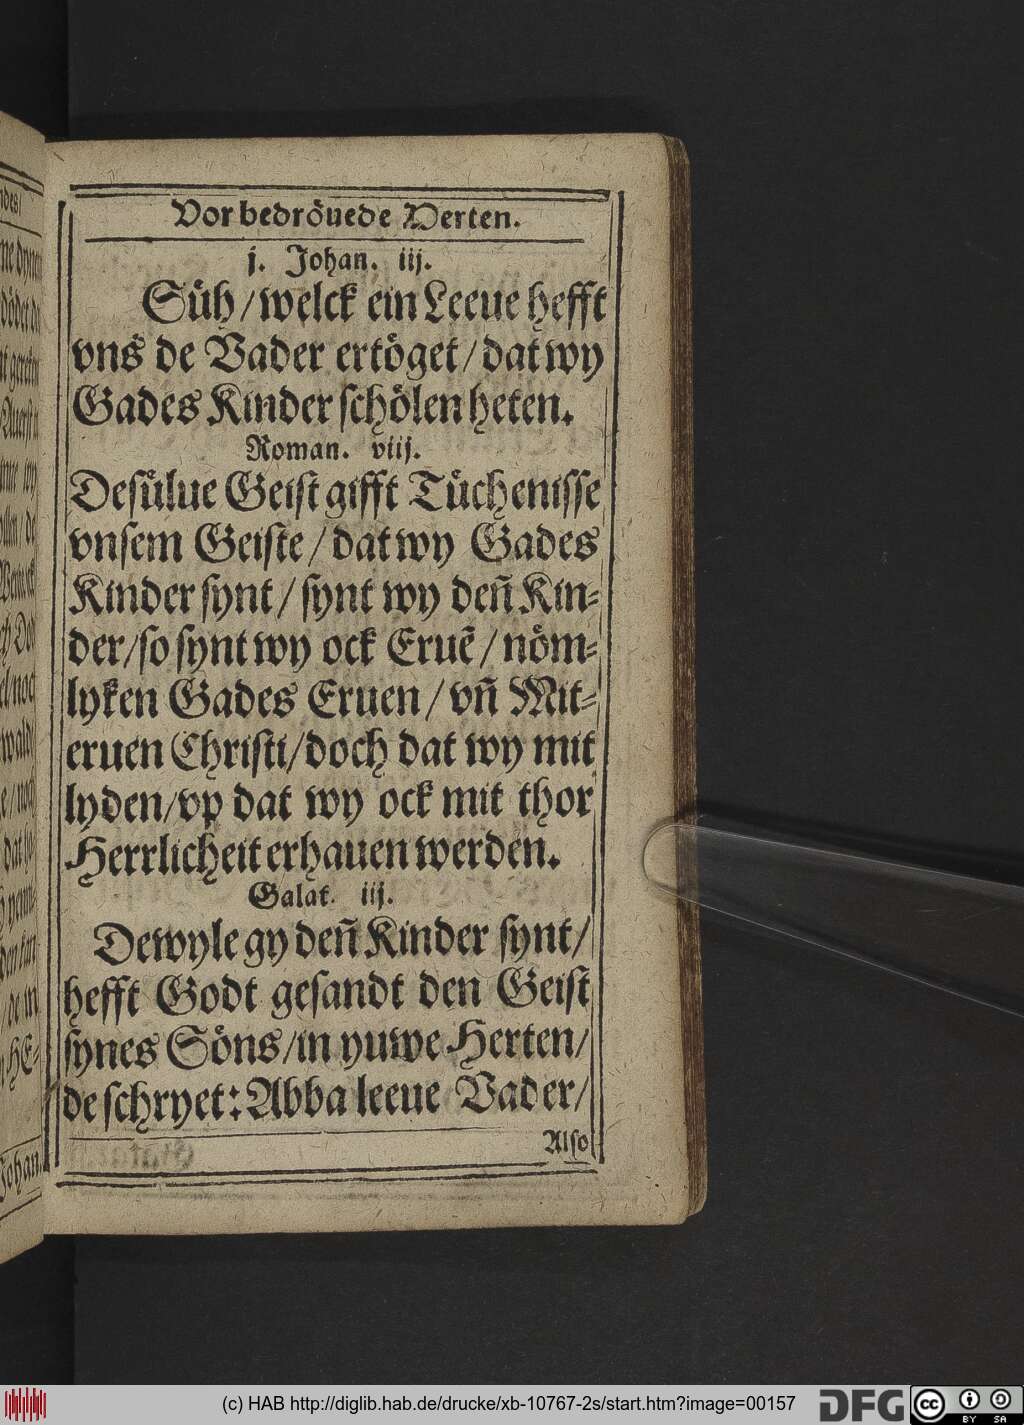 Vor bedroͤuede Herten.
j. Johan. iij.
Suͤh / welck ein Leeue hefft
vns de Vader ertoͤget / dat wy
Gades Kinder ſchoͤlen heten.
Roman. viij.
Deſuͤlue Geiſt gifft Tuͤcheniſſe
vnſem Geiſte / dat wy Gades
Kinder ſynt / ſynt wy deñ Kin⸗
der / ſo ſynt wy ock Eruẽ / noͤm⸗
lyken Gades Eruen / vñ Mit⸗
eruen Chriſti / doch dat wy mit
lyden / vp dat wy ock mit thor
Herrlicheit erhauen werden.
Galat. iij.
Dewyle gy deñ Kinder ſynt /
hefft Godt geſandt den Geiſt
ſynes Soͤns / in yuwe Herten /
de ſchryet: Abba leeue Vader /
Alſo
(c) HAB http://diglib.hab.de/drucke/xb-10767-2s/start.htm?image=00157
DFG
cc
BY SA